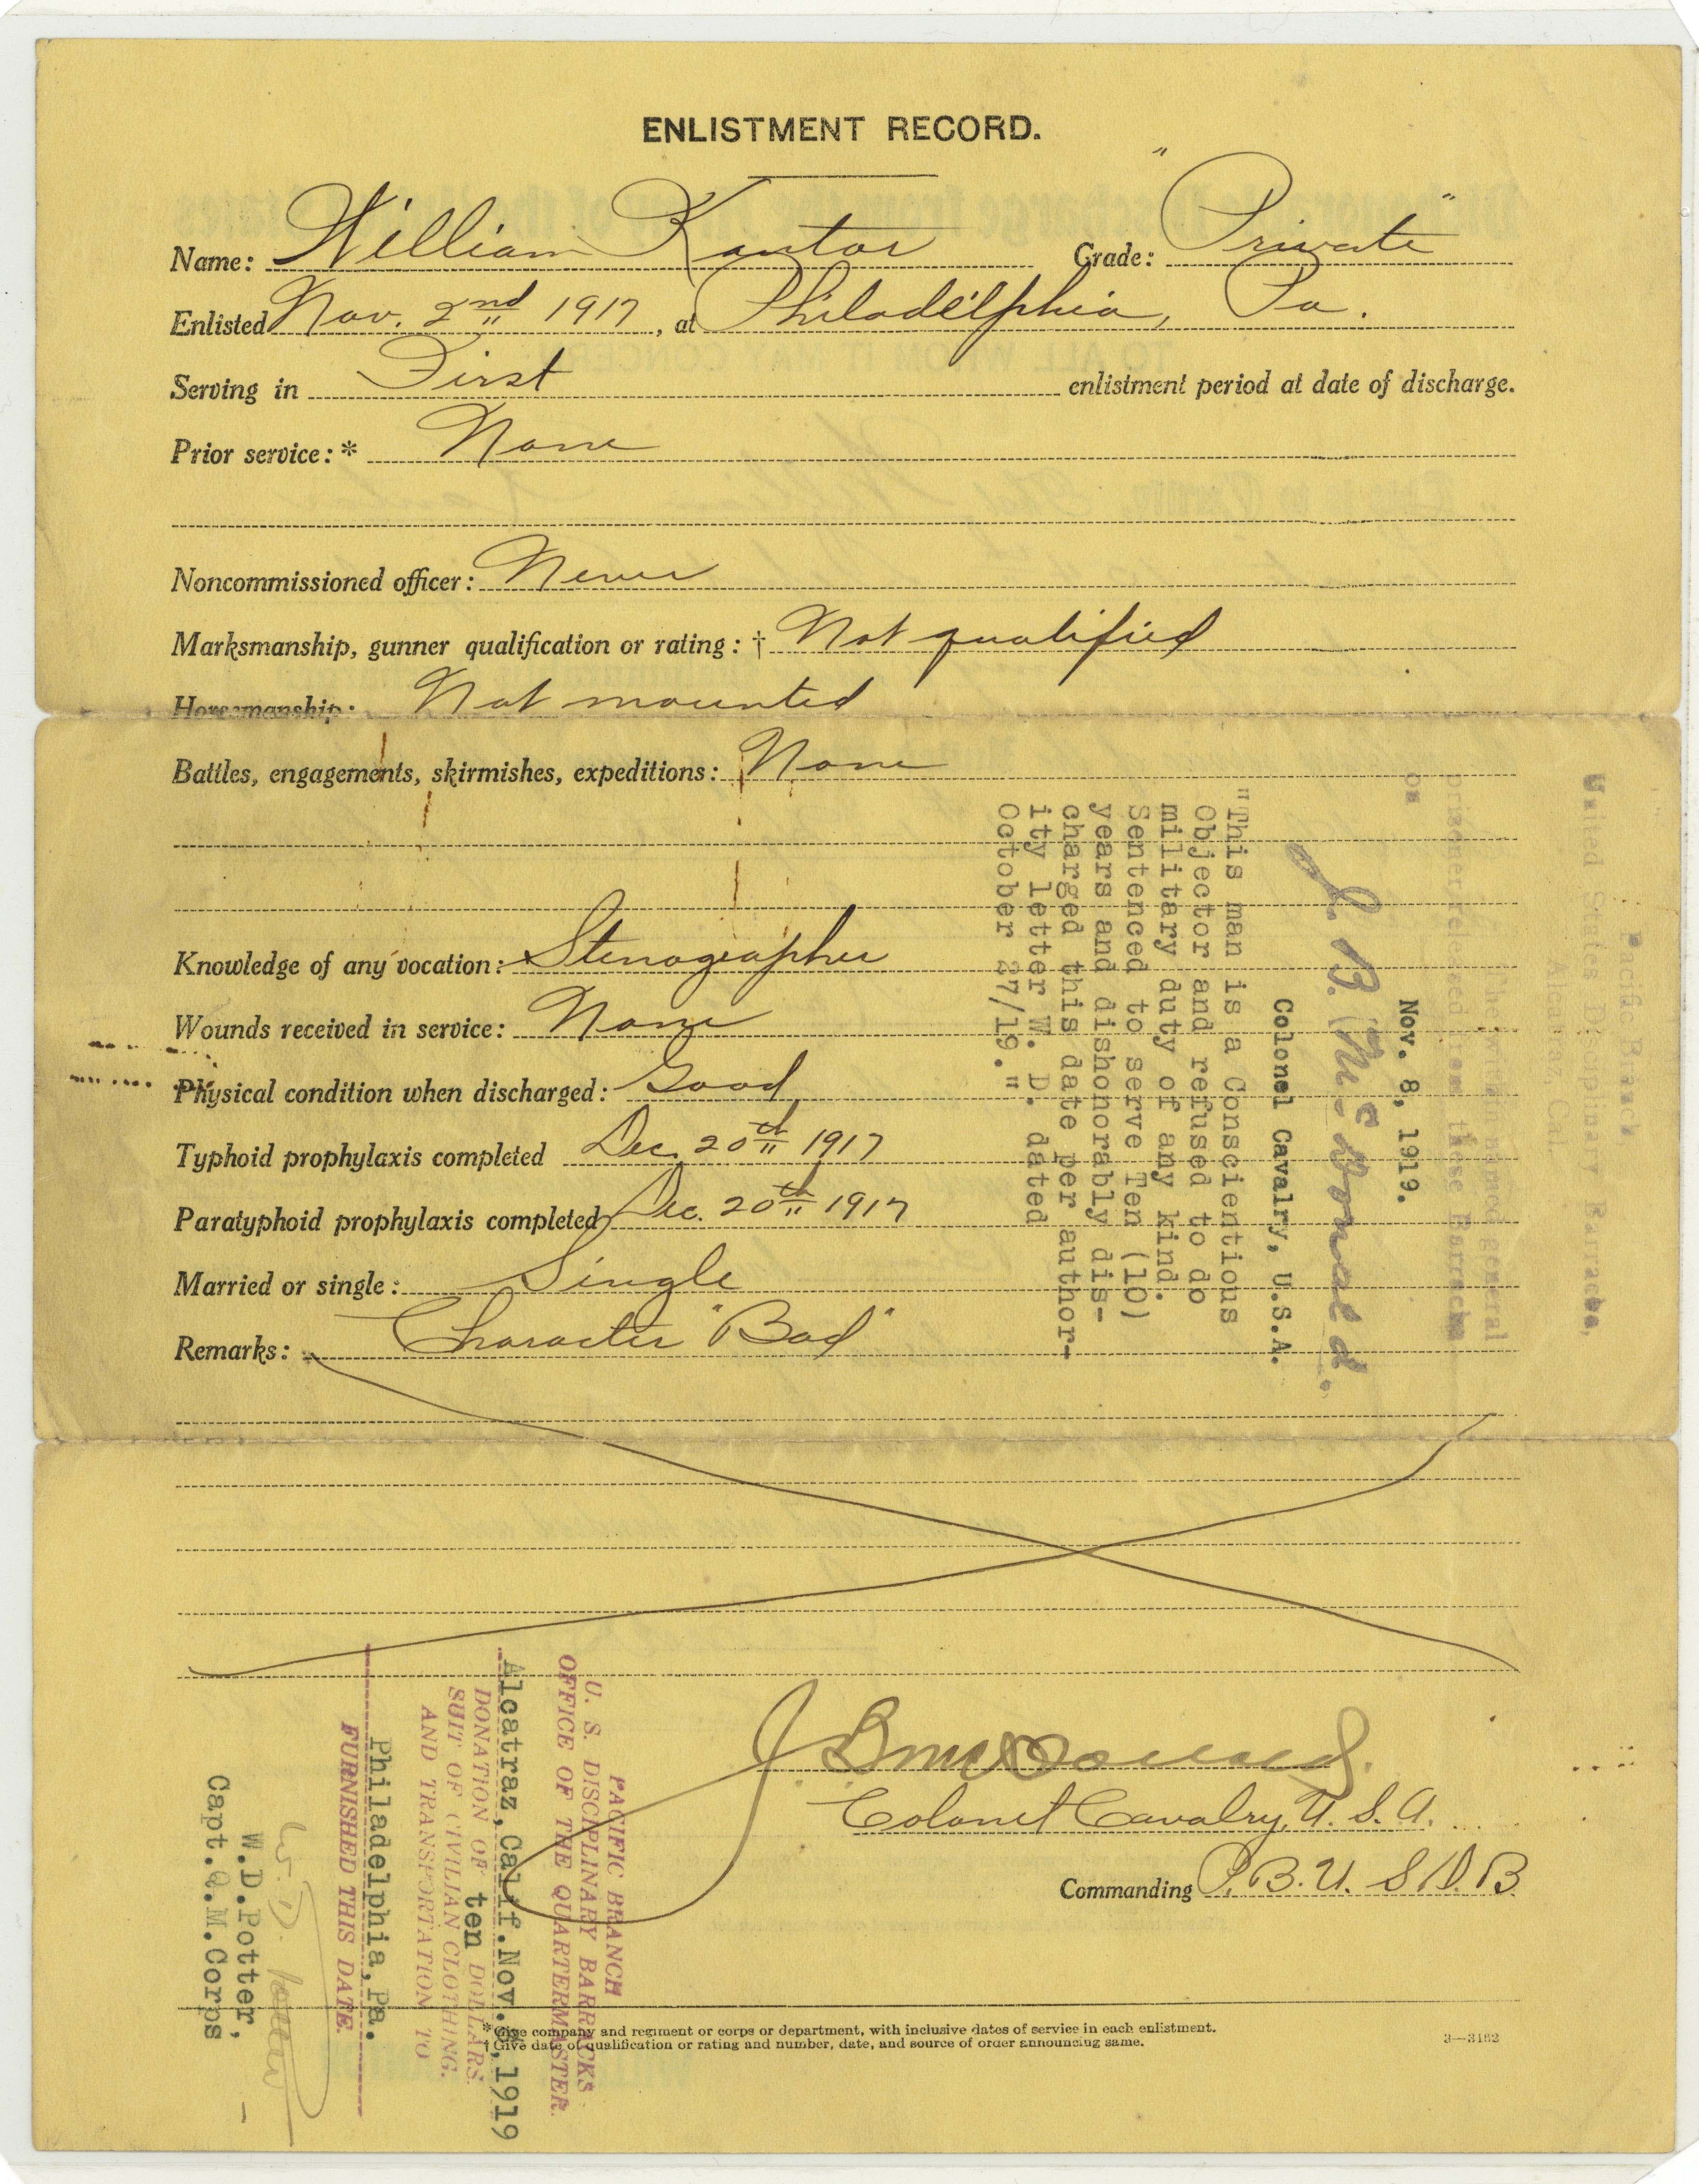 ENLISTMENT RECORD.
Name: William Kantor Grade: "Private"
Enlisted Nov. 2nd 1917, at Philadelphia, Pa.
Serving in First enlistment period at date of discharge.
Prior service: * None
Noncommissioned officer: Never
Marksmanship, gunner qualification or rating: † Not qualified
Horsemanship: Not mounted
Battles, engagements, skirmishes, expeditions: None
Knowledge of any vocation: Stenographer
Wounds received in service: None
Physical condition when discharged: Good
Typhoid prophylaxis completed Dec. 20th 1917
Paratyphoid prophylaxis completed Dec. 20th 1917
Married or single: Single
Remarks: Character "Bad"
"This man is a Conscientious
Objector and refused to do
military duty of any kind.
Sentenced to serve Ten (10)
years and dishonorably dis-
charged this date per author-
ity letter W. D. dated
October 27/19."
Pacific Branch
United States Disciplinary Barracks,
Alcatraz, Cal.
The within named general
prisoner released from these Barracks
on
Nov. 8, 1919.
J. B. McDonald.
Colonel Cavalry, U.S.A.
J. B. McDonald.
Colonel Cavalry, U. S. A.
Commanding P. B. U. S. D. B.
PACIFIC BRANCH
U. S. DISCIPLINARY BARRACKS
OFFICE OF THE QUARTERMASTER.
Alcatraz, Calif. Nov. ,1919
DONATION OF ten DOLLARS.
SUIT OF CIVILIAN CLOTHING.
AND TRANSPORTATION TO
Philadelphia, Pa.
FURNISHED THIS DATE.
W. D. Potter
W.D.Potter,
Capt.Q.M.Corps
* Give company and regiment or corps or department, with inclusive dates of service in each enlistment.
† Give date of qualification or rating and number, date, and source of order announcing same.
3—3162